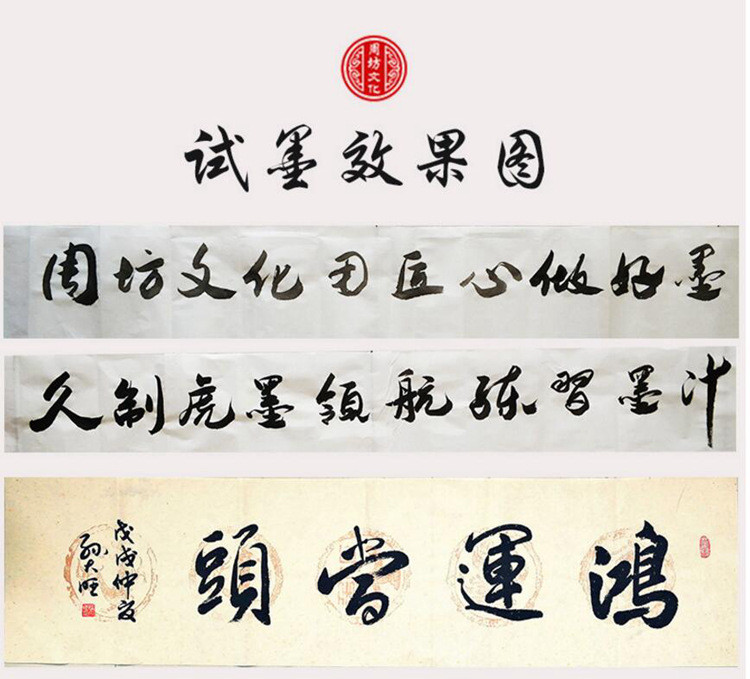 周坊文化
试墨效果图
周坊文化用匠心做好墨
久制虎墨領航練習墨汁
鴻運當頭
戊戌仲夏